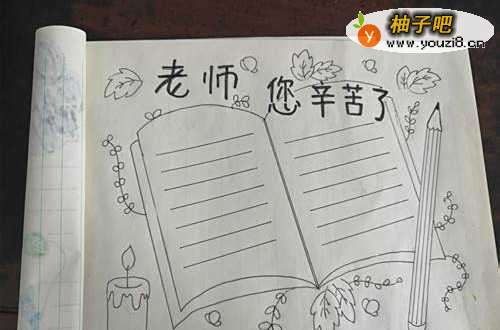 柚子吧
www.youzi8.cn
老师 您辛苦了